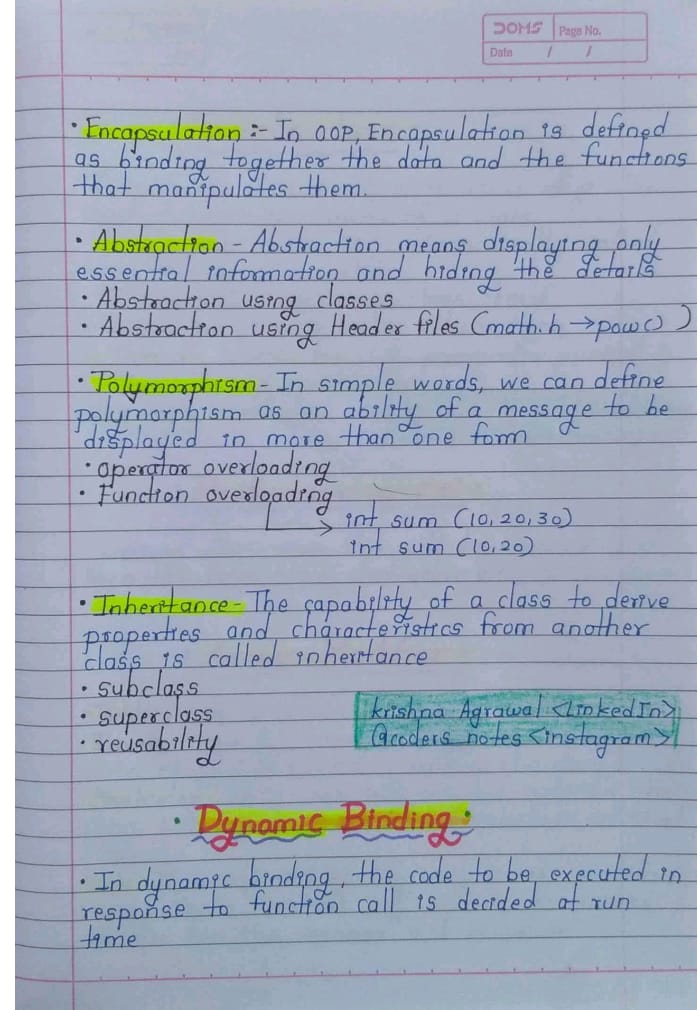 DOMS Page No.
Date / /
• Encapsulation :- In OOP, Encapsulation is defined
as binding together the data and the functions
that manipulates them.
• Abstraction - Abstraction means displaying only
essential information and hiding the details
• Abstraction using classes
• Abstraction using Header files (math.h → pow())
• Polymorphism - In simple words, we can define
polymorphism as an ability of a message to be
displayed in more than one form
• operator overloading
• Function overloading
int sum (10, 20, 30)
int sum (10, 20)
• Inheritance - The capability of a class to derive
properties and characteristics from another
class is called inheritance
• subclass
• superclass
• reusability
krishna Agrawal <LinkedIn>
@coders notes <instagram>
• Dynamic Binding •
• In dynamic binding, the code to be executed in
response to function call is decided at run
time